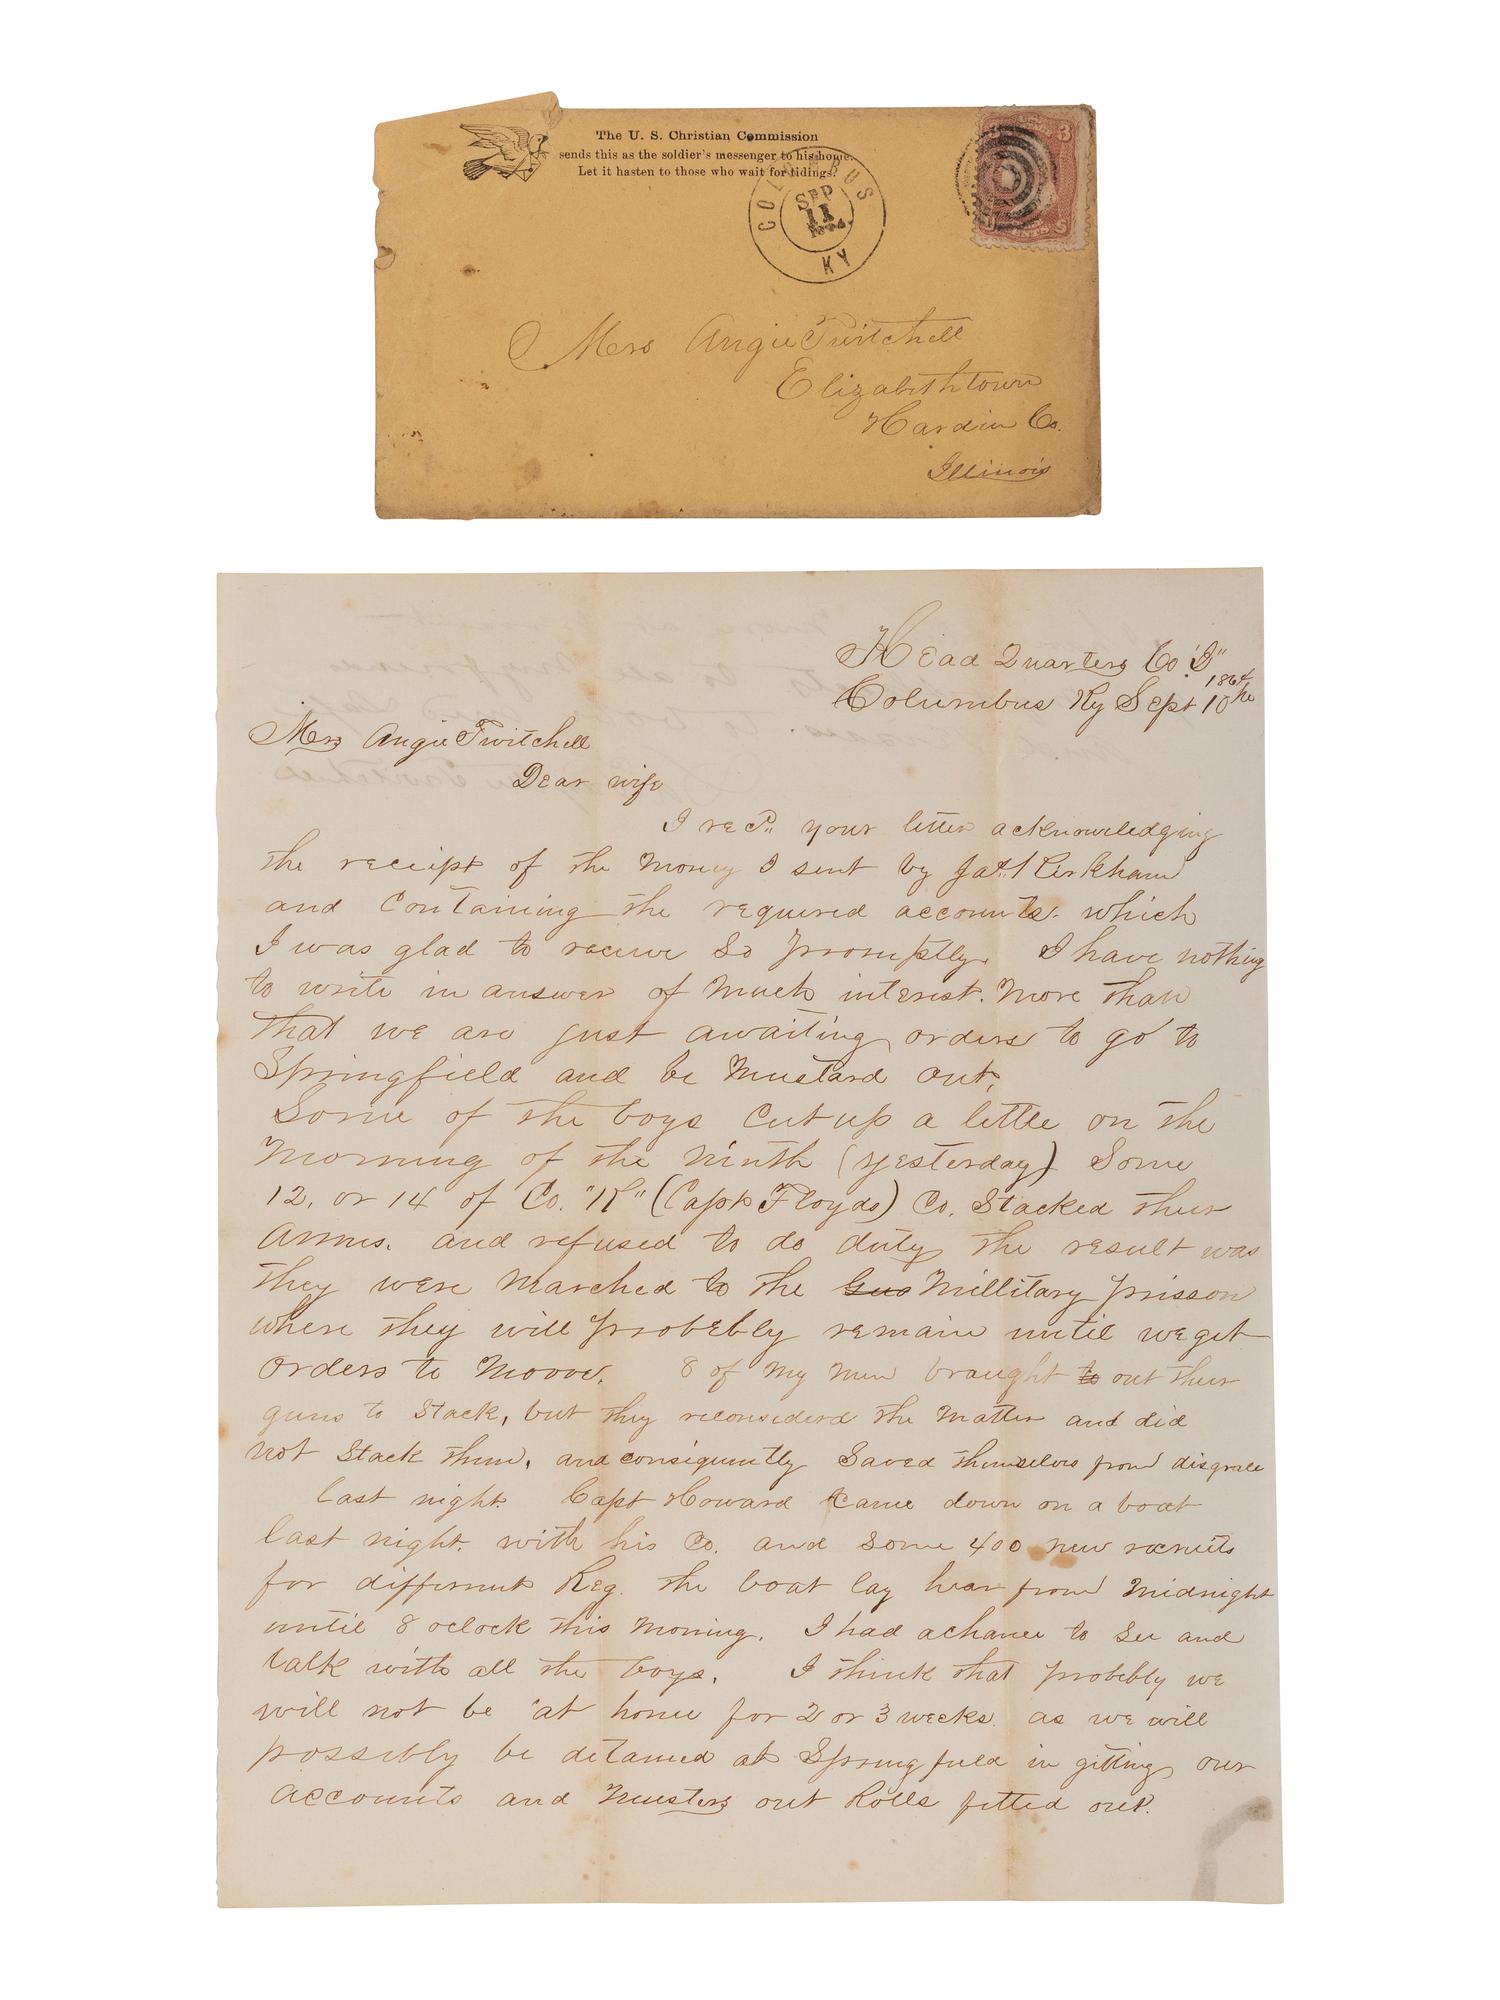 The U. S. Christian Commission
sends this as the soldier's messenger to his home.
Let it hasten to those who wait for tidings.
COLUMBUS
SEP
11
KY
3
Mrs Angie Twitchell
Elizabethtown
Hardin Co.
Illinois
Head Quarters Co
1864
Columbus Ky Sept 10th
Mrs Angie Twitchell
Dear wife
I recd. your letter acknowledging
the receipt of the Money I sent by Jas. Kirkham
and Containing the required accounts. which
I was glad to receive so promptly. I have nothing
to write in answer of Much interest. More than
that we are just awaiting orders to go to
Springfield and be Mustard out.
Some of the boys Cut up a little on the
Morning of the Ninth (yesterday) Some
12, or 14 of Co. "K" (Capt Floyds) Co. Stacked their
Arms. and refused to do duty the result was
they were Marched to the Millitary prisson
where they will probebly remain until we get
orders to Moove. 8 of My Men braught to out their
guns to Stack, but they reconsiderd the Matter and did
not Stack them, and consiquently Saved themselves from disgrace
last night Capt Howard Came down on a boat
last night. with his Co. and some 400 new recruits
for different Reg. the boat lay hear from Midnight
until 8 oclock this Morning. I had a chance to See and
talk with all the boys. I think that probebly we
will not be at home for 2 or 3 weeks. as we will
possibly be detained at Springfield in gitting our
accounts and Musters out Rolls fitted out.